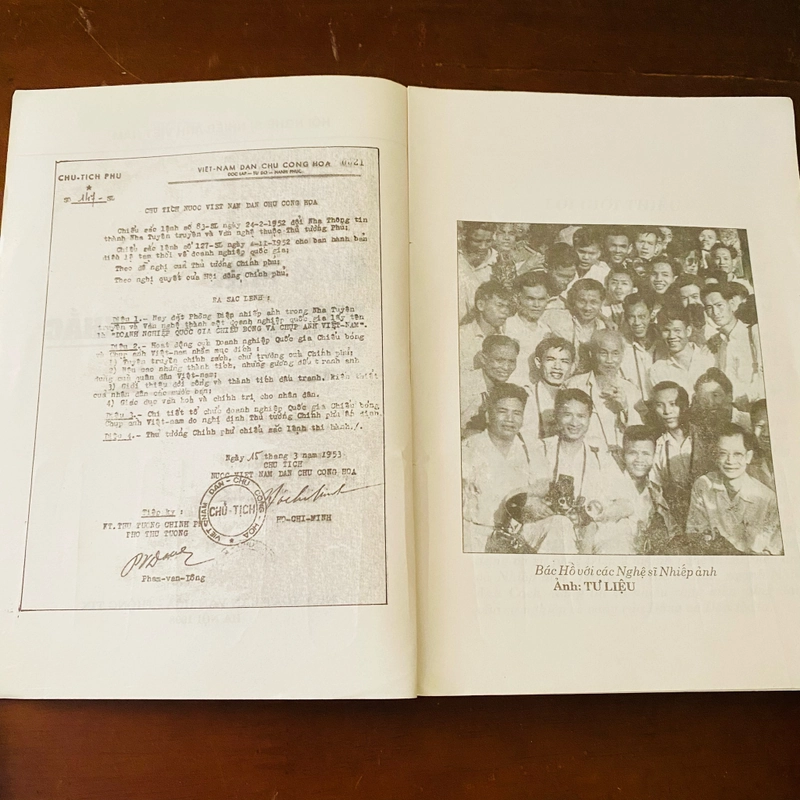 CHU-TICH PHU
VIỆT-NAM DAN CHU CONG HOA
DOC LAP - TU DO - HANH PHUC
Số 147-SL
CHU TỊCH NƯỚC VIET NAM DAN CHU CONG HOA
Chiếu sắc lệnh số 83-SL ngày 24-2-1952 đổi Nha Thông tin
thành Nha Tuyên truyền và Văn nghệ thuộc Thủ tướng Phủ;
Chiếu sắc lệnh số 127-SL ngày 4-11-1952 cho ban hành bản
điều lệ tạm thời về doanh nghiệp quốc gia;
Theo đề nghị của Thủ tướng Chính phủ;
Theo nghị quyết của Hội đồng Chính phủ,
RA SAC LENH :
Điều 1.- Nay đặt Phòng Điện nhiếp ảnh trong Nha Tuyên
truyền và Văn nghệ thành một doanh nghiệp quốc gia lấy tên
là "DOANH NGHIỆP QUỐC GIA CHIẾU BÓNG VÀ CHỤP ẢNH VIỆT-NAM".
Điều 2.- Hoạt động của Doanh nghiệp Quốc gia Chiếu bóng
và Chụp ảnh Việt-nam nhằm mục đích :
1) Tuyên truyền chính sách, chủ trương của Chính phủ;
2) Nêu cao những thành tích, những gương đấu tranh anh
dũng của quân dân Việt-nam;
3) Giới thiệu đời sống và thành tích đấu tranh, kiến thiết
của nhân dân các nước bạn;
4) Giáo dục văn hoá và chính trị cho nhân dân.
Điều 3.- Chi tiết tổ chức doanh nghiệp Quốc gia Chiếu bóng,
Chụp ảnh Việt-nam do nghị định Thủ tướng Chính phủ ấn định.
Điều 4.- Thủ tướng Chính phủ chiếu sắc lệnh thi hành./.
Ngày 15 tháng 3 năm 1953
CHU TICH
NUOC VIET NAM DAN CHU CONG HOA
Tiếp ký :
KT. THU TUONG CHINH PHU
PHO THU TUONG
VIET NAM DAN CHU CONG HOA
CHỦ TỊCH
HO-CHI-MINH
Pham-van-Đồng
Bác Hồ với các Nghệ sĩ Nhiếp ảnh
Ảnh: TƯ LIỆU